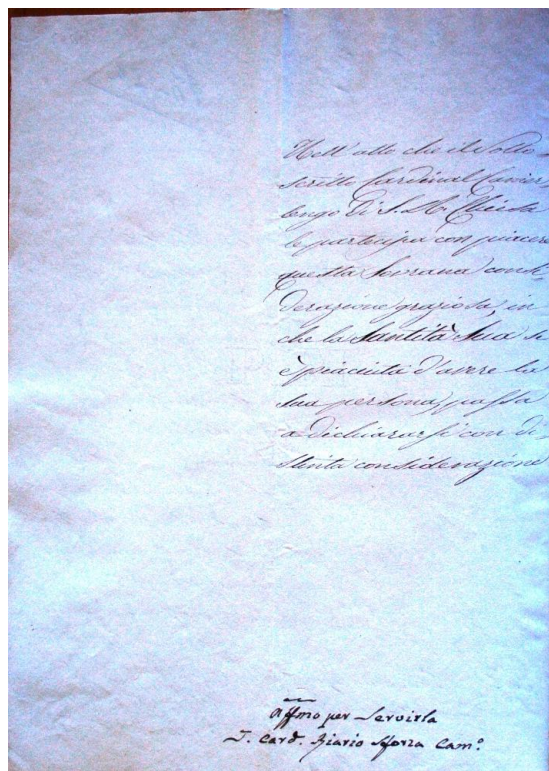 Nell' atto che il Sotto-
scritto Cardinal Camer-
lengo di S. R. Chiesa
le partecipa con piacere
questa Sovrana consi-
derazione graziosa, in
che la Santità Sua si
è piaciuta d'avere la
sua persona, passa
a dichiararsi con di-
stinta considerazione
Affmo per Servirla
T. Card. Riario Sforza Cam.º